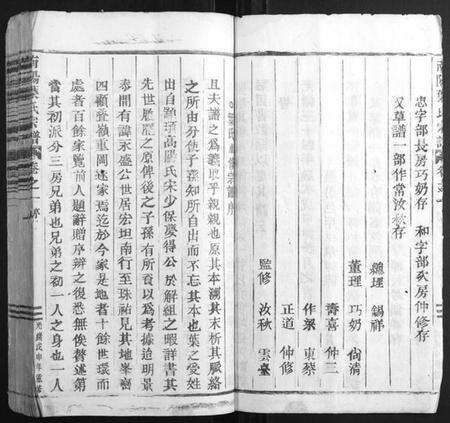 南陽葉氏宗譜 卷之一
忠字部長房巧奶存 和字部 房仲修存
又草譜一部作常汝秋存
總理 錫祥
董理 巧奶 尚滿
壽喜 仲三
作聚 東蔡
正道 仲修
監修 汝秋 雲臺
且夫譜之為義取乎親親也原其本溯其末析其脈絡
之所由分使子孫知所自出而不忘其本也葉之受姓
出自顓頊高陽氏宋少保夢得公於解組之暇詳書其
先世歷歷之原俾後之子孫有所資以為考據迨明景
泰間有諱永盛公世居宏坦南行至珠祐見其地峯巒
四顧登嶺重岡遂家焉迄於今家是地者十餘世環而
處者百餘家覽前人題辭贈序辨之復悉無俟贅述第
當其初派分三房兄弟也兄弟之初一人之身也一人
南陽葉氏宗譜 卷之一 序
光緒戊申年重修